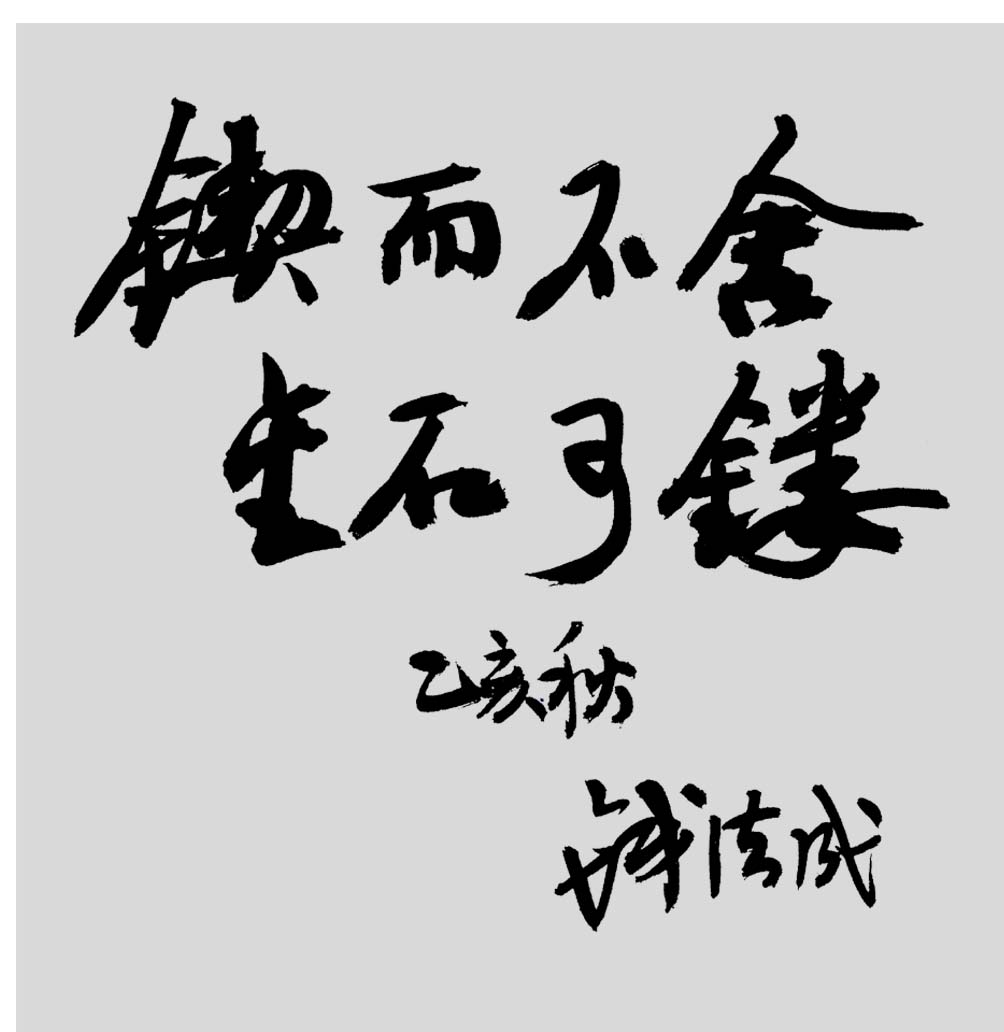 锲而不舍
金石可镂
乙亥秋
钱法成